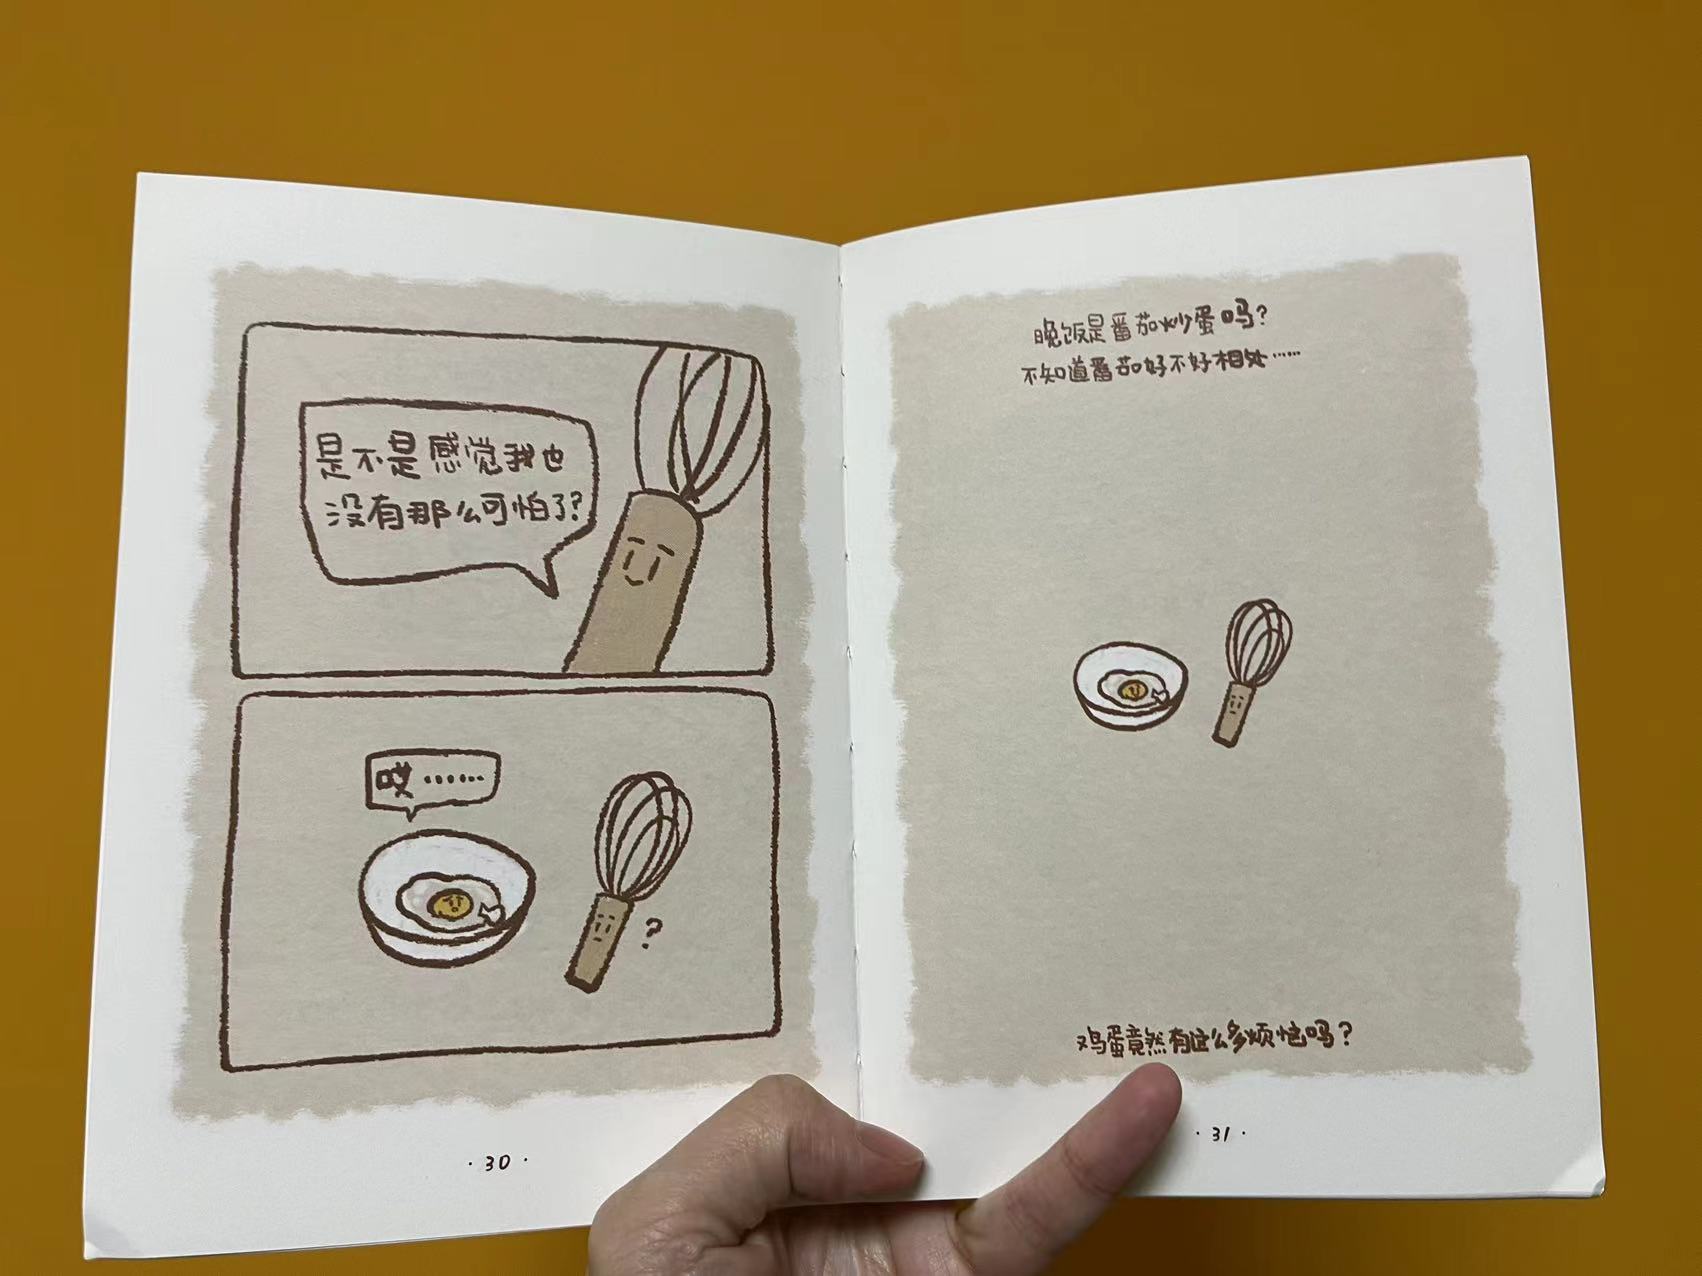 是不是感觉我也
没有那么可怕了?
哎……
?
·30·
晚饭是番茄炒蛋吗?
不知道番茄好不好相处……
鸡蛋竟然有这么多烦恼吗?
·31·